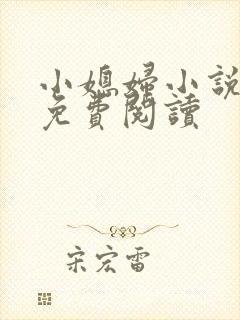 小媳婦小說
免費閱讀
宋宏雷